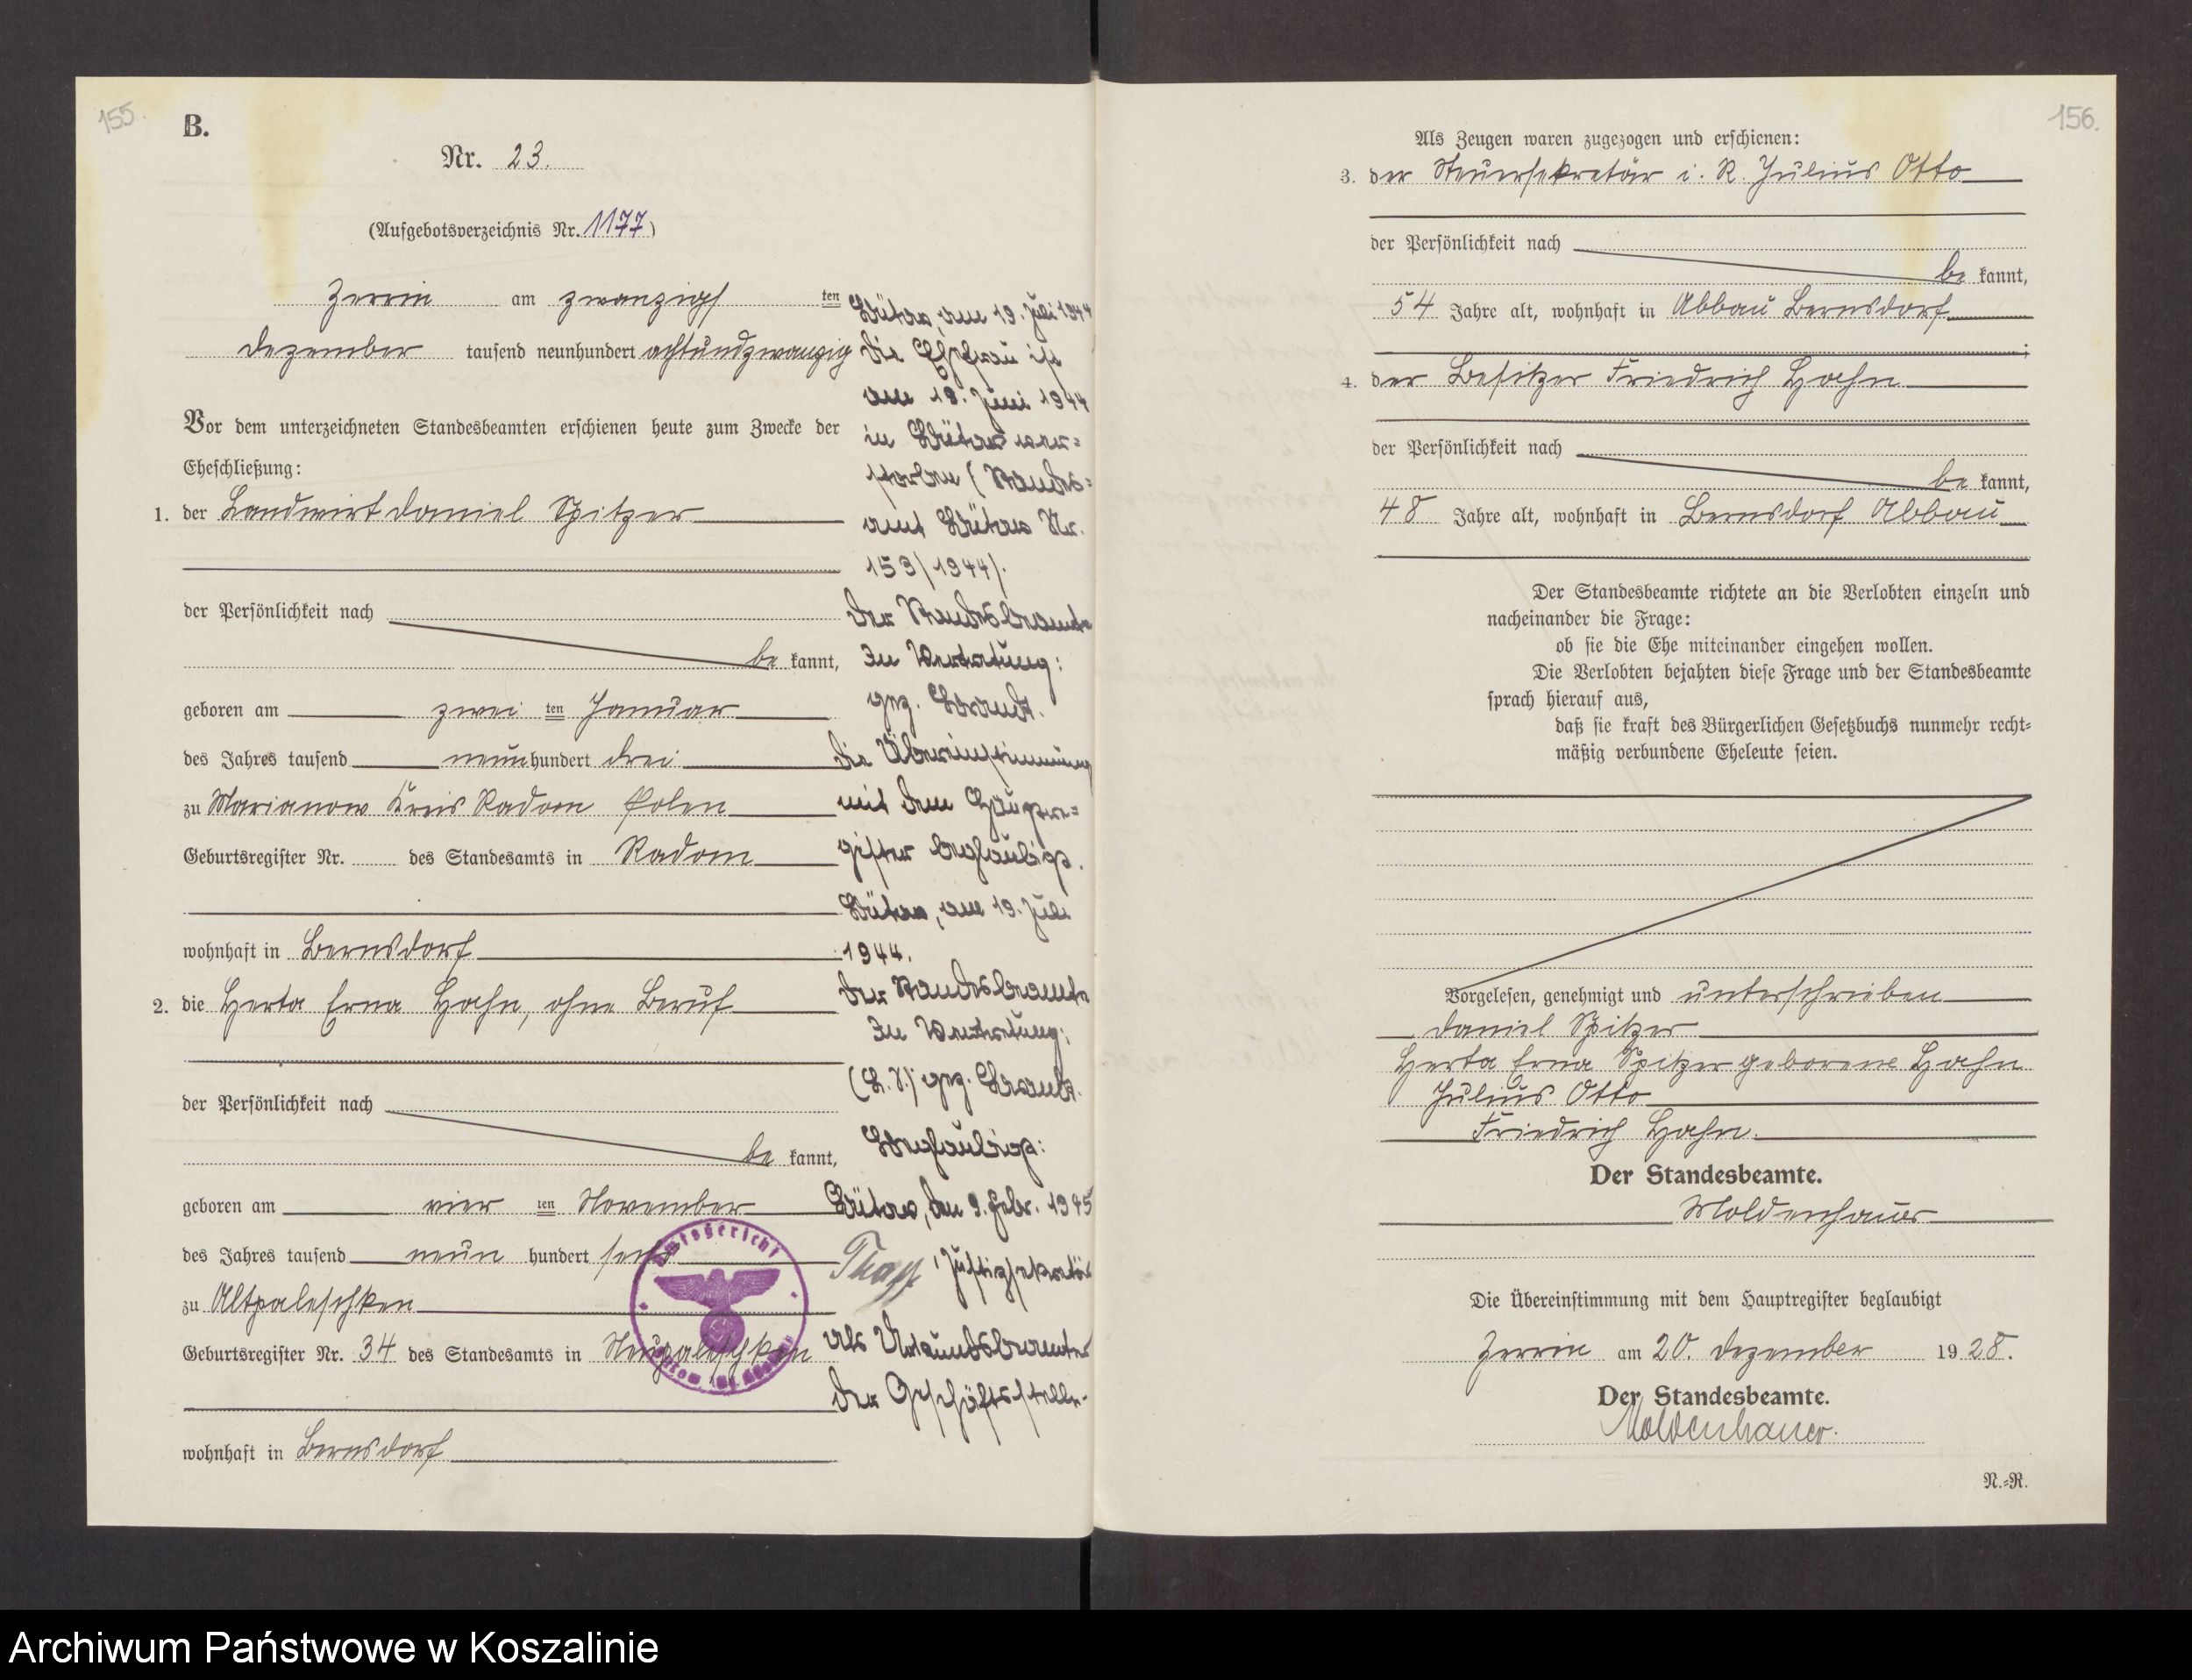 155.
B.
Nr. 23.
(Aufgebotsverzeichnis Nr. 1177)
Zerrin am zwanzigsten
Dezember tausend neunhundert achtundzwanzig
Vor dem unterzeichneten Standesbeamten erschienen heute zum Zwecke der
Eheschließung:
1. der Landwirt Daniel Spitzer
der Persönlichkeit nach
be kannt,
geboren am zwei ten Januar
des Jahres tausend neun hundert drei
zu Marianow Kreis Radom Polen
Geburtsregister Nr. des Standesamts in Radom
wohnhaft in Bernsdorf
2. die Herta Erna Hahn, ohne Beruf
der Persönlichkeit nach
be kannt,
geboren am vier ten November
des Jahres tausend neun hundert sechs
zu Altpaleschken
Geburtsregister Nr. 34 des Standesamts in Neupaleschken
wohnhaft in Bernsdorf
Bütow, am 19. Juli 1944
Die Ehefrau ist
am 18. Juni 1944
in Bütow ver=
storben (Standes=
amt Bütow Nr.
153/1944).
Der Standesbeamte
In Vertretung:
gez. Brandt.
Die Übereinstimmung
mit dem Hauptre=
gister beglaubigt.
Bütow, am 19. Juli
1944.
Der Standesbeamte
In Vertretung:
(L.S.) gez. Brandt.
Beglaubigt:
Bütow, den 9. Febr. 1945
Justizsekretär
als Urkundsbeamter
der Geschäftsstelle.
Amtsgericht
156.
Als Zeugen waren zugezogen und erschienen:
3. der Steuersekretär i. R. Julius Otto
der Persönlichkeit nach
be kannt,
54 Jahre alt, wohnhaft in Abbau Bernsdorf
;
4. der Besitzer Friedrich Hahn
der Persönlichkeit nach
be kannt,
48 Jahre alt, wohnhaft in Bernsdorf Abbau
Der Standesbeamte richtete an die Verlobten einzeln und
nacheinander die Frage:
ob sie die Ehe miteinander eingehen wollen.
Die Verlobten bejahten diese Frage und der Standesbeamte
sprach hierauf aus,
daß sie kraft des Bürgerlichen Gesetzbuchs nunmehr recht=
mäßig verbundene Eheleute seien.
Vorgelesen, genehmigt und unterschrieben
Daniel Spitzer
Herta Erna Spitzer geborene Hahn
Julius Otto
Friedrich Hahn.
Der Standesbeamte.
Moldenhauer
Die Übereinstimmung mit dem Hauptregister beglaubigt
Zerrin am 20. Dezember 19 28.
Der Standesbeamte.
Moldenhauer.
N.=R.
Archiwum Państwowe w Koszalinie